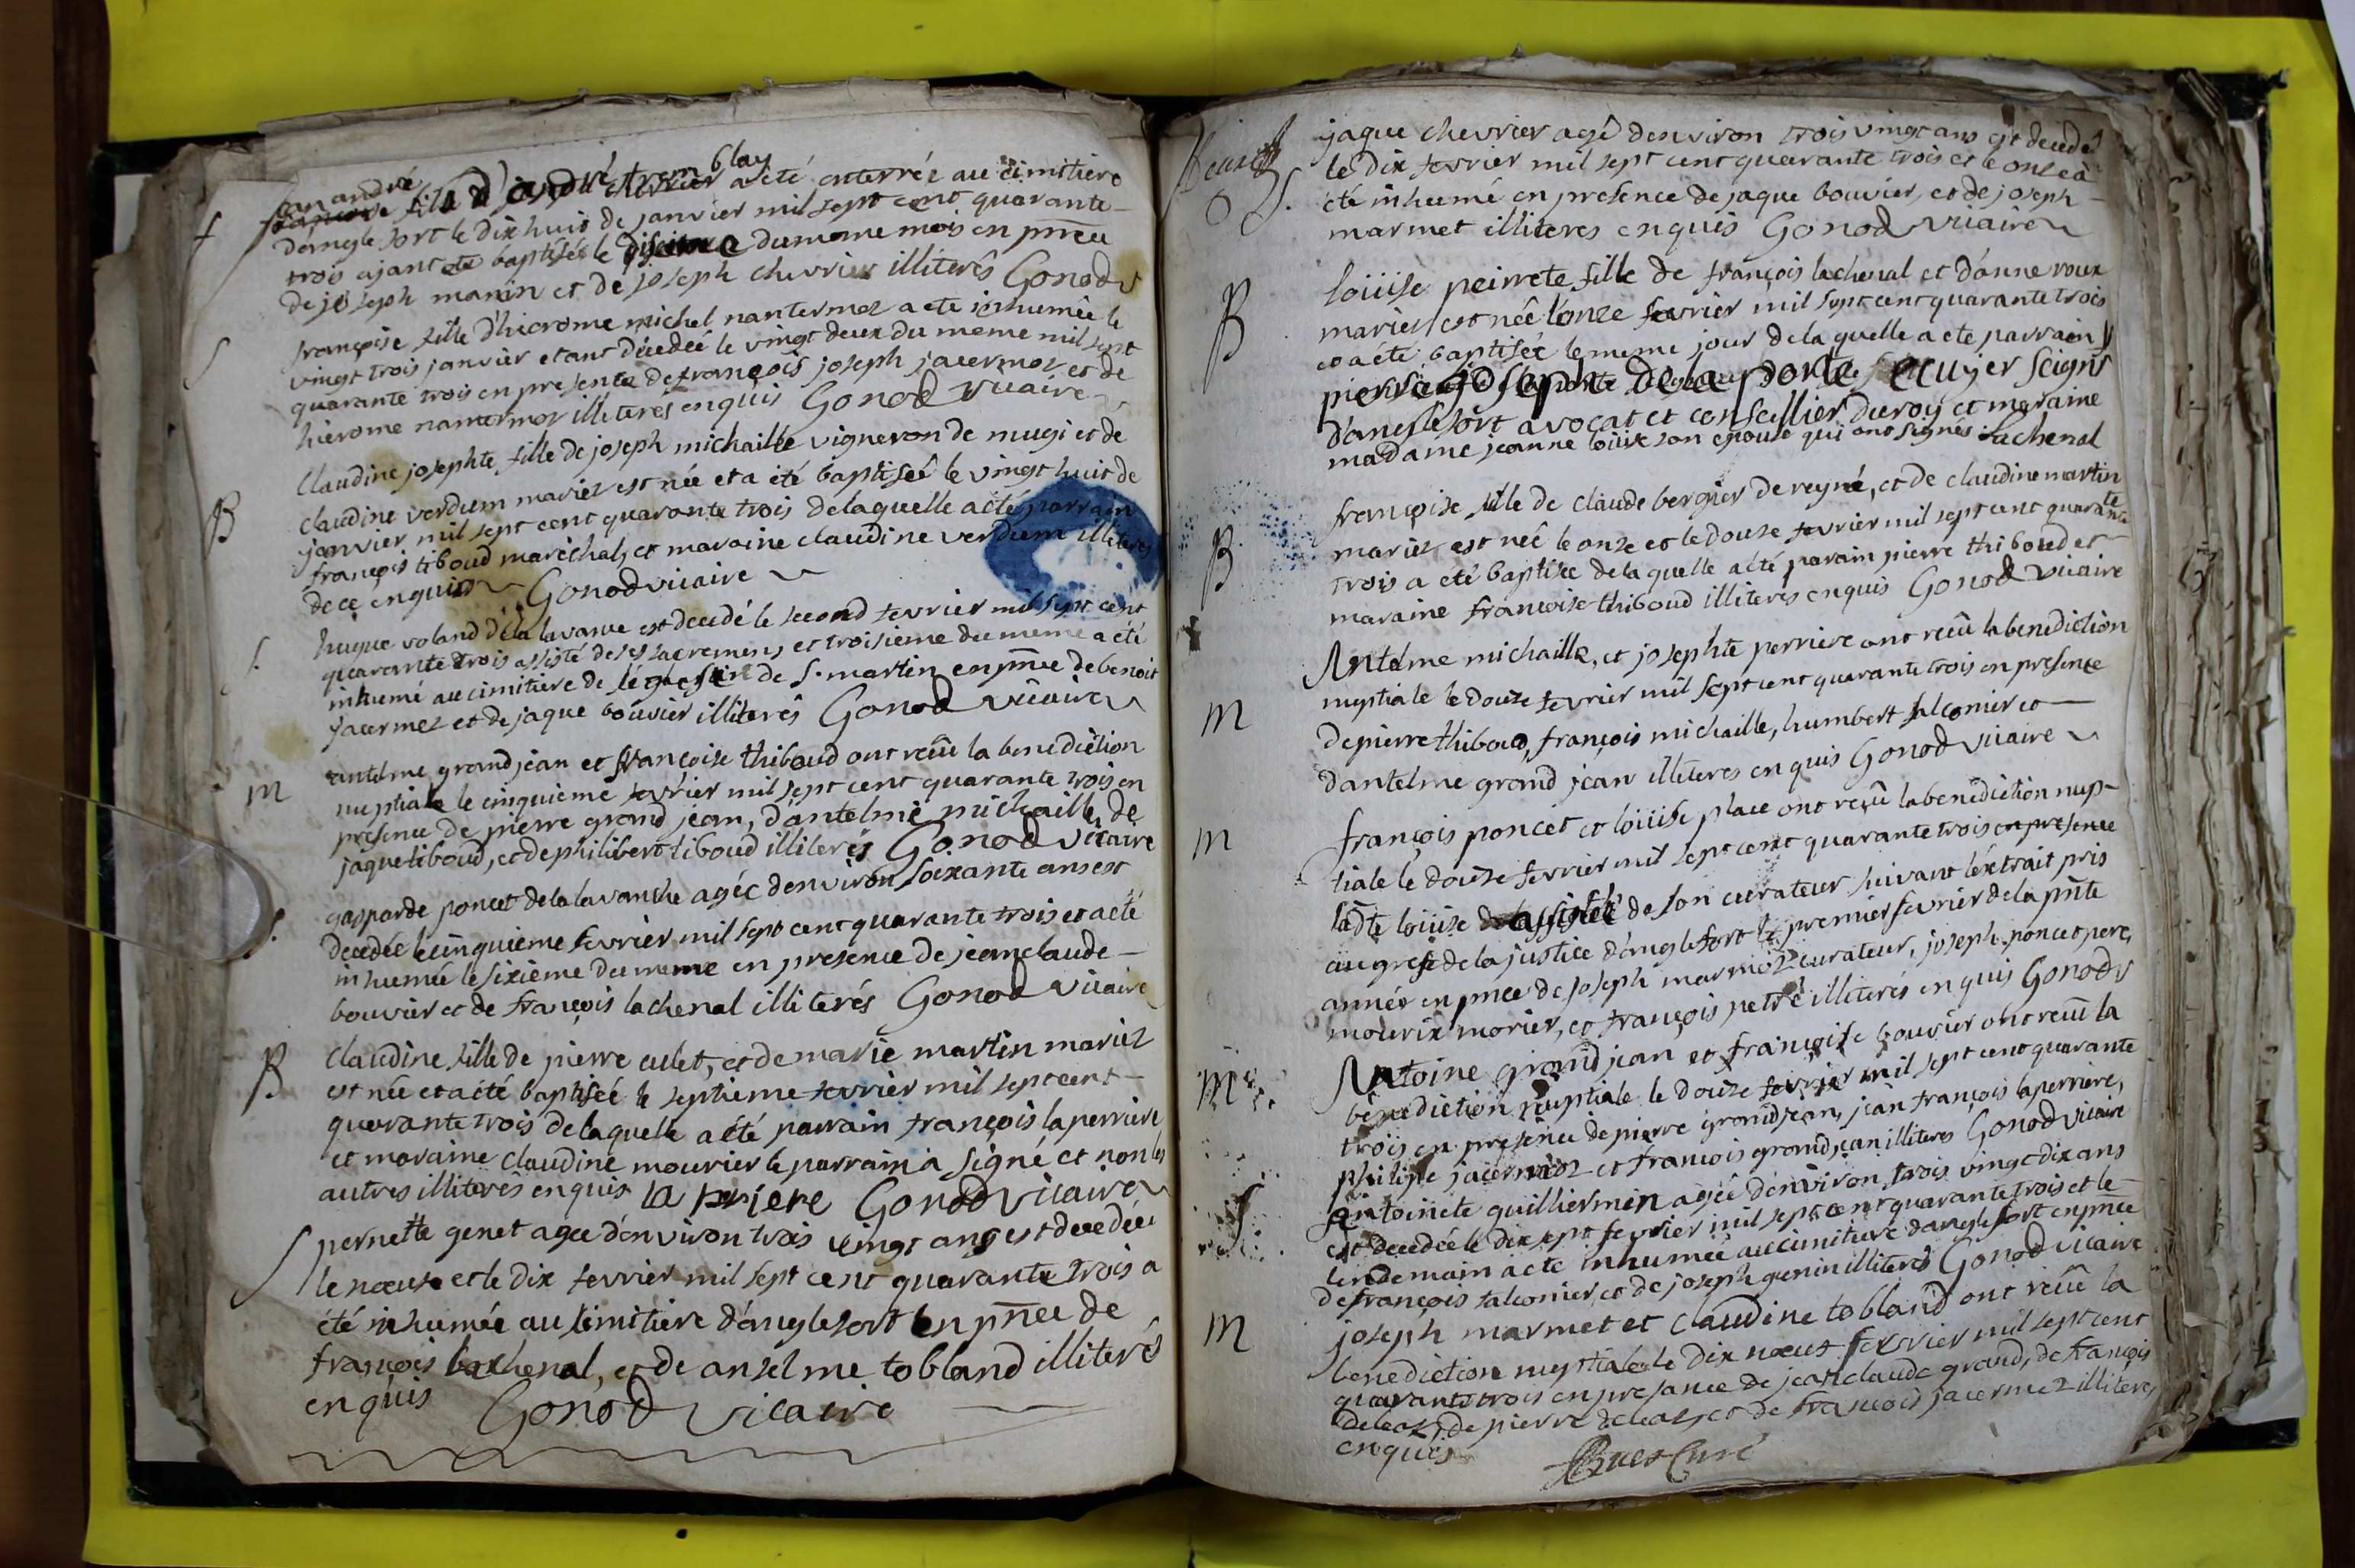 jean andré
fils d'andré tremblay
a été enterrée au cimitiere
d'anglefort le dix huit de janvier mil sept cent quarante
trois ajant eté baptisée le du meme mois en pñce
de joseph manin et de joseph chevrier illiterés Gonod v
S
françoise fille d'hierome michel nantermoz a ete inhumée le
vingt trois janvier etant décedée le vingt deux du meme mil sept
quarante trois en presente de françois joseph jacermoz et de
hierome nantermoz illiterés enquis Gonod vicaire
B
Claudine josephte fille de joseph michaille vigneron de mugi et de
claudine verdum mariez est née et a été baptiseé le vingt huit de
janvier mil sept cent quarante trois de laquelle a été parrain
françois tiboud maréchal, et maraine claudine verdum illiteres
de ce enquis Gonod vicaire
S.
hugue voland de la lavanve est decedé le second fevrier mil sept cent
quarante trois assisté de ses sacremens et troisieme du meme a été
inhumé au cimitiere de de S. martin en pñce de benoit
jacermez et de jaque bouvier illiterês Gonod vicaire
m
antelme grand jean et françoise thiboud ont receu la benediction
nuptiale le cinquieme fevrier mil sept cent quarante trois en
presence de pierre grand jean, d'antelme michaille, de
jaque tiboud, et de philibert tiboud illiterés Gonod vicaire
S.
gasparde poncet de la lavanche agée d'environ soixante ans est
decedée le cinquieme fevrier mil sept cent quarante trois et a eté
inhumée le sixieme du meme en presence de jean claude
bouvier et de françois lachenal illiterés Gonod vicaire
B
Claudine fille de pierre culet, et de marie martin mariez
est née et a été baptisée le septieme fevrier mil sept cent
quarante trois de laquelle a été parrain françois laperriere
et maraine claudine mourier le parrain a signé et non les
autres illiterês enquis la periere Gonod vicaire
S
pernette genet agee d'environ trois vingt ans est decedée
le noeuf et le dix fevrier mil sept cent quarante trois a
été inhumée au cimitiere d'anglefort en pñce de
françois lachenal, et de anselme tobland illiterés
enquis Gonod vicaire
S.
jaque chevrier agé d'environ trois vingt ans est decedé
le dix fevrier mil sept cent quarante trois et le onze a
été inhumé en presence de jaque bouvier, et de joseph
marmet illiteres enquis Gonod vicaire
B
loüise peirrete fille de françois lachenal et d'anne roux
mariez est née l'onze fevrier mil sept cent quarante trois
et a été baptisee le meme jour de la quelle a ete parrain
pierre joseph de la porte Ecuyer seignr
d'anglefort avocat et conseillier du roy et maraine
madame jeanne loüise son epouse qui ont signés Lachenal
B
françoise fille de claude bergier de reyné, et de claudine martin
mariez est neê le onze et le douze fevrier mil sept cent quarante
trois a eté baptisée de la quelle a été parain pierre thiboud et
maraine francoise thiboud illiterés enquis Gonod vicaire
m
Antelme michaille, et josephte perriere ont recû la benediction
nuptiale le douze fevrier mil sept cent quarante trois en presence
de pierre thiboud, françois michaille, humbert falconier et
d'antelme grand jean illiteres enquis Gonod vicaire
m
françois poncet et loüise place ont reçû la benediction nup-
tiale le douze fevrier mil sept cent quarante trois en presence
ladte loüise assistée de son curateur suivant l'extrait pris
au grefe de la justice d'anglefort le premier fevrier de la pñte
année en pñce de joseph marmoz curateur, joseph poncet pere,
mourix morier, et françois petré illiterés enquis Gonod v
m
Antoine grand jean et françoise bouvier ont receû la
benediction nuptiale le douze fevrier mil sept cent quarante
trois en presence de pierre grand jean, jean françois laperriere,
philipe jacermoz et francois grand jean illiteres Gonod vicaire
S
antoinete guilliermin agée d'environ trois vingt dix ans
est decedée le dix sept fevrier mil sept cent quarante trois et le
lendemain a ete inhumée au cimitiere d'anglefort en pñce
de françois falconier et de joseph genin illiterês Gonod vicaire
m
joseph marmet et claudine tobland ont receû la
benediction nuptiale le dix noeuf fevrier mil sept cent
quarante trois en presance de jean claude grand, de françois
deleaz, de pierre deleaz, et de françois jacermez illiteres
enquis
Curé